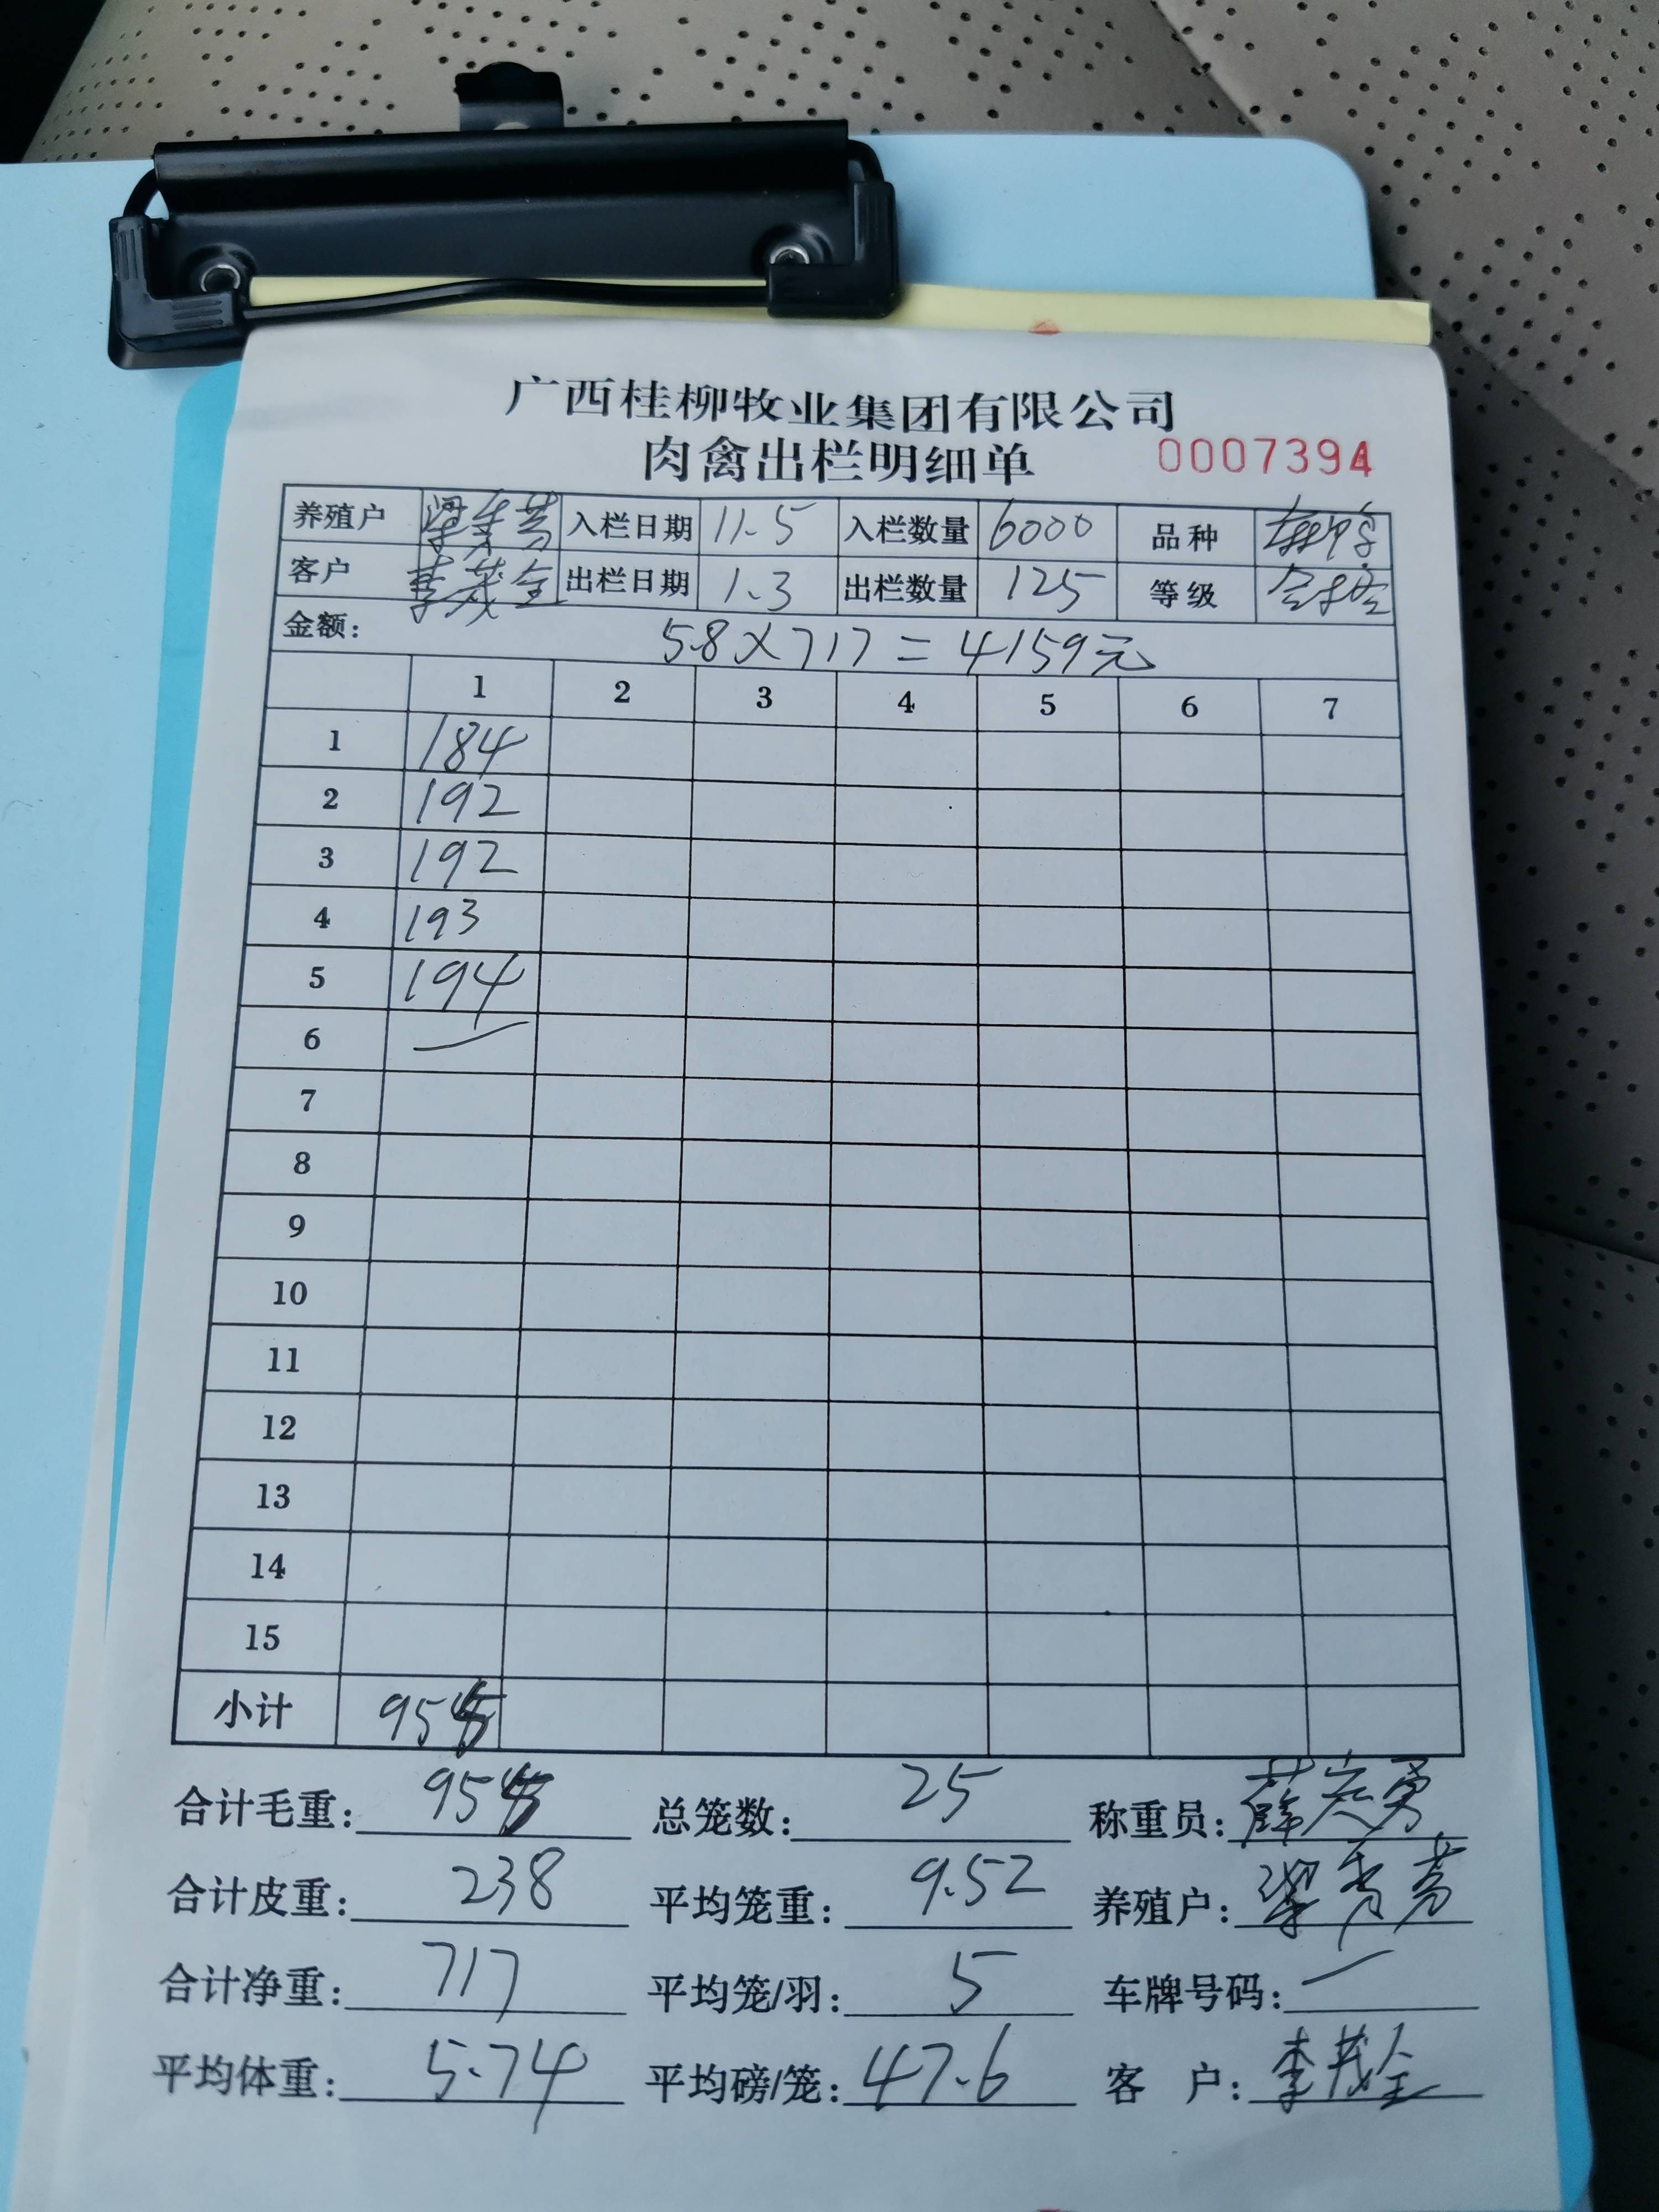 广西桂柳牧业集团有限公司
肉禽出栏明细单 0007394
养殖户 梁秀芳 入栏日期 11.5 入栏数量 6000 品种
客户 李茂全 出栏日期 1.3 出栏数量 125 等级
金额: 5.8×717=4159元
1 2 3 4 5 6 7
1 184
2 192
3 192
4 193
5 194
6 —
7
8
9
10
11
12
13
14
15
小计 955
合计毛重: 955 总笼数: 25 称重员: 薛宏勇
合计皮重: 238 平均笼重: 9.52 养殖户: 梁秀芳
合计净重: 717 平均笼/羽: 5 车牌号码: —
平均体重: 5.74 平均磅/笼: 47.6 客 户: 李茂全